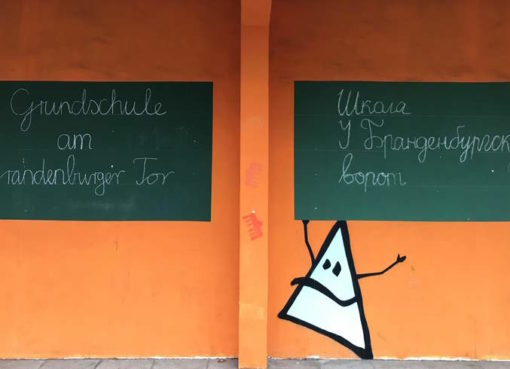 Grundschule
am
randenburger Tor
Школа
У Бранденбургск
ворот